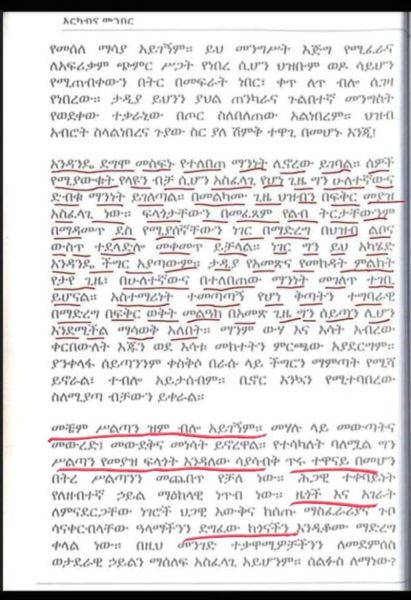 እርካብና መንበር
የመሰለ ማሳያ አይገኝም። ይህ መንግሥት እጅግ የሚፈራና
ለአፍሪቃም ጭምር ሥጋት የነበረ ሲሆን ህዝቡም ወዶ ሳይሆን
የሚጠብቀውን በትር በመፍራት ነበር፣ ቀጥ ለጥ ብሎ ሲገዛ
የነበረው። ታዲያ ይህንን ያህል ጠንካራና ጉልበተኛ መንግስት
የወደቀው ተቃራኒው በጦር ስለበለጠው አልነበረም። ህዝብ
አብሮት ስላልነበረና ጉያው ስር ያለ ሽምቅ ተዋጊ በመሆኑ እንጂ!
አንዳንዴ ደግሞ መስፍኑ የተለበጠ ማንነት ሊኖረው ይገባል። ሰዎች
የሚያውቁት የላዩን ብቻ ሲሆን አስፈላጊ የሆነ ጊዜ ግን ሁለተኛውና
ድብቁ ማንነት ይገለጣል። በመልካሙ ጊዜ ህዝብን በፍቅር መያዝ
አስፈላጊ ነው። ፍላጎታቸውን በመፈጸም የልብ ትርታቸውንም
በማዳመጥ ደስ የሚያሰኛቸውን ነገር በማድረግ በህዝብ ልቦና
ውስጥ ተደላድሎ መቀመጥ ይቻላል። ነገር ግን ይህ አካሄድ
አንዳንዴ ችግር አያጣውም። ታዲያ የአመጽና የመከዳት ምልክት
የታየ ጊዜ፣ በሁለተኛውና በተለበጠው ማንነት መገለጥ ተገቢ
ይሆናል። አስተማሪነት ተመጣጣኝ የሆነ ቅጣትን ተግባራዊ
በማድረግ በፍቅር ወቅት መልዓክ በአመጽ ጊዜ ግን ሰይጣን ሊሆን
እንደሚችል ማሳወቅ አለበት። ማንም ውሃ እና እሳት አብረው
ቀርበውለት እጁን ወደ እሳቱ መክተትን ምርጫው አያደርግም።
ያንቀላፋ ሰይጣንንም ቀስቅሶ በራሱ ላይ ችግሮን ማምጣት የሚሻ
ይኖራል፣ ተብሎ አይታሰብም። ቢኖር እንኳን የሚተባበረው
ስለሚያጣ ብቻውን ይቀራል።
መቼም ሥልጣን ዝም ብሎ አይገኝም። መሃሉ ላይ መውጣትና
መውረድ፣ መውደቅና መነሳት ይኖረዋል። የተሳካለት ባለሟል ግን
ሥልጣን የመያዝ ፍላጎት እንዳለው ሳያሳብቅ ጥሩ ተዋናይ በመሆን
በትረ ሥልጣንን መጨበጥ የቻለ ነው። ሕጋዊ ተቀባይነት
የለዘብተኛ ኃይል ማዕከላዊ ነጥብ ነው። ዜጎች እና አገራት
ለምናደርጋቸው ነገሮች ህጋዊ እውቅና ከሰጡ ማስፈራሪያና ጉቦ
ሳናቀርብላቸው ዓላማችንን ደግፈው ከጎናችን እንዲቆሙ ማድረግ
ቀላል ነው። በዚህ መንገድ ተቃዋሚዎቻችንን ለመደምሰስ
ወታደራዊ ኃይልን ማሰለፍ አስፈላጊ አይሆንም። ሰልፉስ ለማነው?